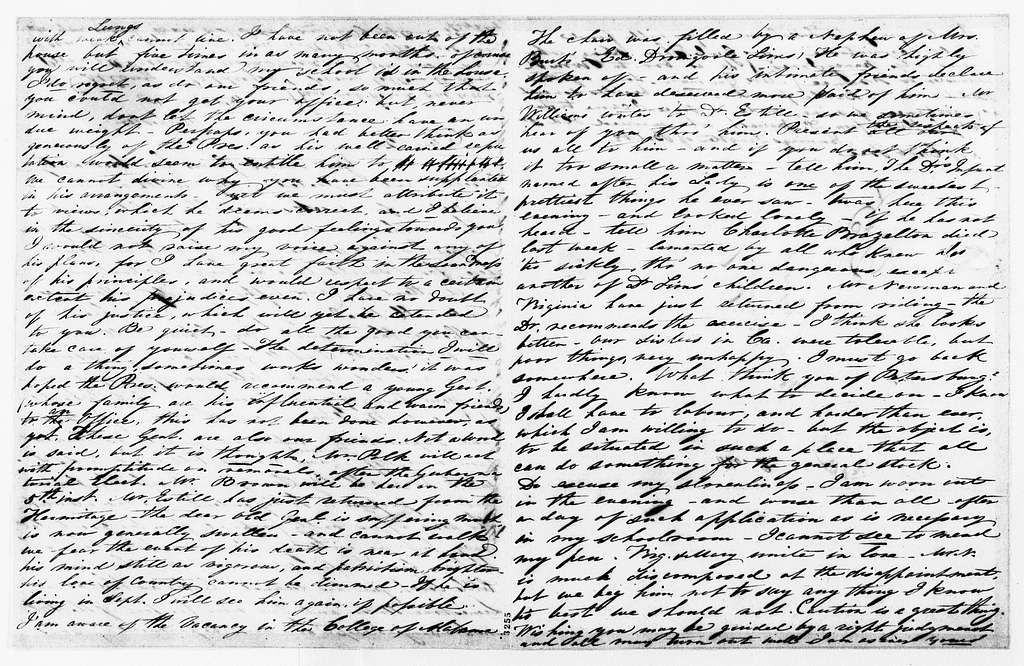 Lungs
with weak cannot live. I have not been out of the
house but five times in as many months, of course
you will understand my school is in the house,
I do regret, as do our friends, so much that
you could not get your office: but never
mind, dont let the circumstance have an un
due weight - Perhaps, you had better think as
generously of the Pres. as his well earned repu
tation would seem to entitle him to
we cannot divine why you have been supplanted
in his arrangements - But we must attribute it
to views, which he deems correct, and I believe
in the sincerity of his good feelings towards you
I would not raise my voice against any of
his plans, for I have great faith in the
of his principles, and would respect to a certain
extent his prejudices even. I have no doubt
of his justice, which will yet be extended
to you. Be quiet - do all the good you can
take care of yourself - The determination I will
do a thing, sometimes works wonders. it was
hoped the Pres. would recommend a young Gent.
(whose family are his influential and warm friends
to an office, this has not been done however, as
yet. These Gent. are also our friends. Not a word
is said, but it is thought, Mr. Polk will act
with promptitude on removals, after the Guberna
torial Elect. Mr. Brown will be here on the
5th inst. Mr. Estill has just returned from the
Hermitage the dear old Genl. is suffering much
is now generally swollen - and cannot walk
we fear the event of his death is near at hand
his mind still as vigorous, and patriotism bright
his love of Country cannot be dimmed - If he is
living in Sept. I will see him again, if possible
I am aware of the Vacancy in the College of
He chair was filled by a Nephew of Mrs.
Ed. Dromgoole Sims. He was highly
spoken of - and his intimate friends declare
him to have deserved more said of him - Mr
Williams writes to Dr. Estill, so we sometimes
hear of you thro' him. Present the respects of
us all to him - and if you do not think
it too small a matter - tell him, the Drs. Infant
named after his Lady is one of the sweetest -
prettiest things he ever saw - Twas here this
evening - and looked lovely - If he has not
heard - tell him Charlotte Brazelton died
last week - lamented by all who knew her
'tis sickly, tho' no one dangerous, except
another of Dr Sims children. Mr Newman and
Virginia have just returned from riding - the
Dr. recommends the exercise - I think she looks
better - our sisters in Ga. were tolerable, but
poor things, very unhappy. I must go back
somewhere. What think you of Petersburg?
I hardly know what to decide on - I know
I shall have to labour, and harder than ever,
which I am willing to do - but the object is,
to be situated in such a place - that all
can do something for the general stock.
Do excuse my - I am worn out
in the evening - and worse than all after
a day of such application as is necessary
in my schoolroom - I cannot see to mend
my pen. Virg. & Mary unite in love - Mr. N.
is much discomposed at the disappointment,
but we beg him not to say any thing I know
'tis best we should not. Caution is a great thing.
Wishing you may be guided by a right judgment
and all may turn out well I am as ever yours
3255